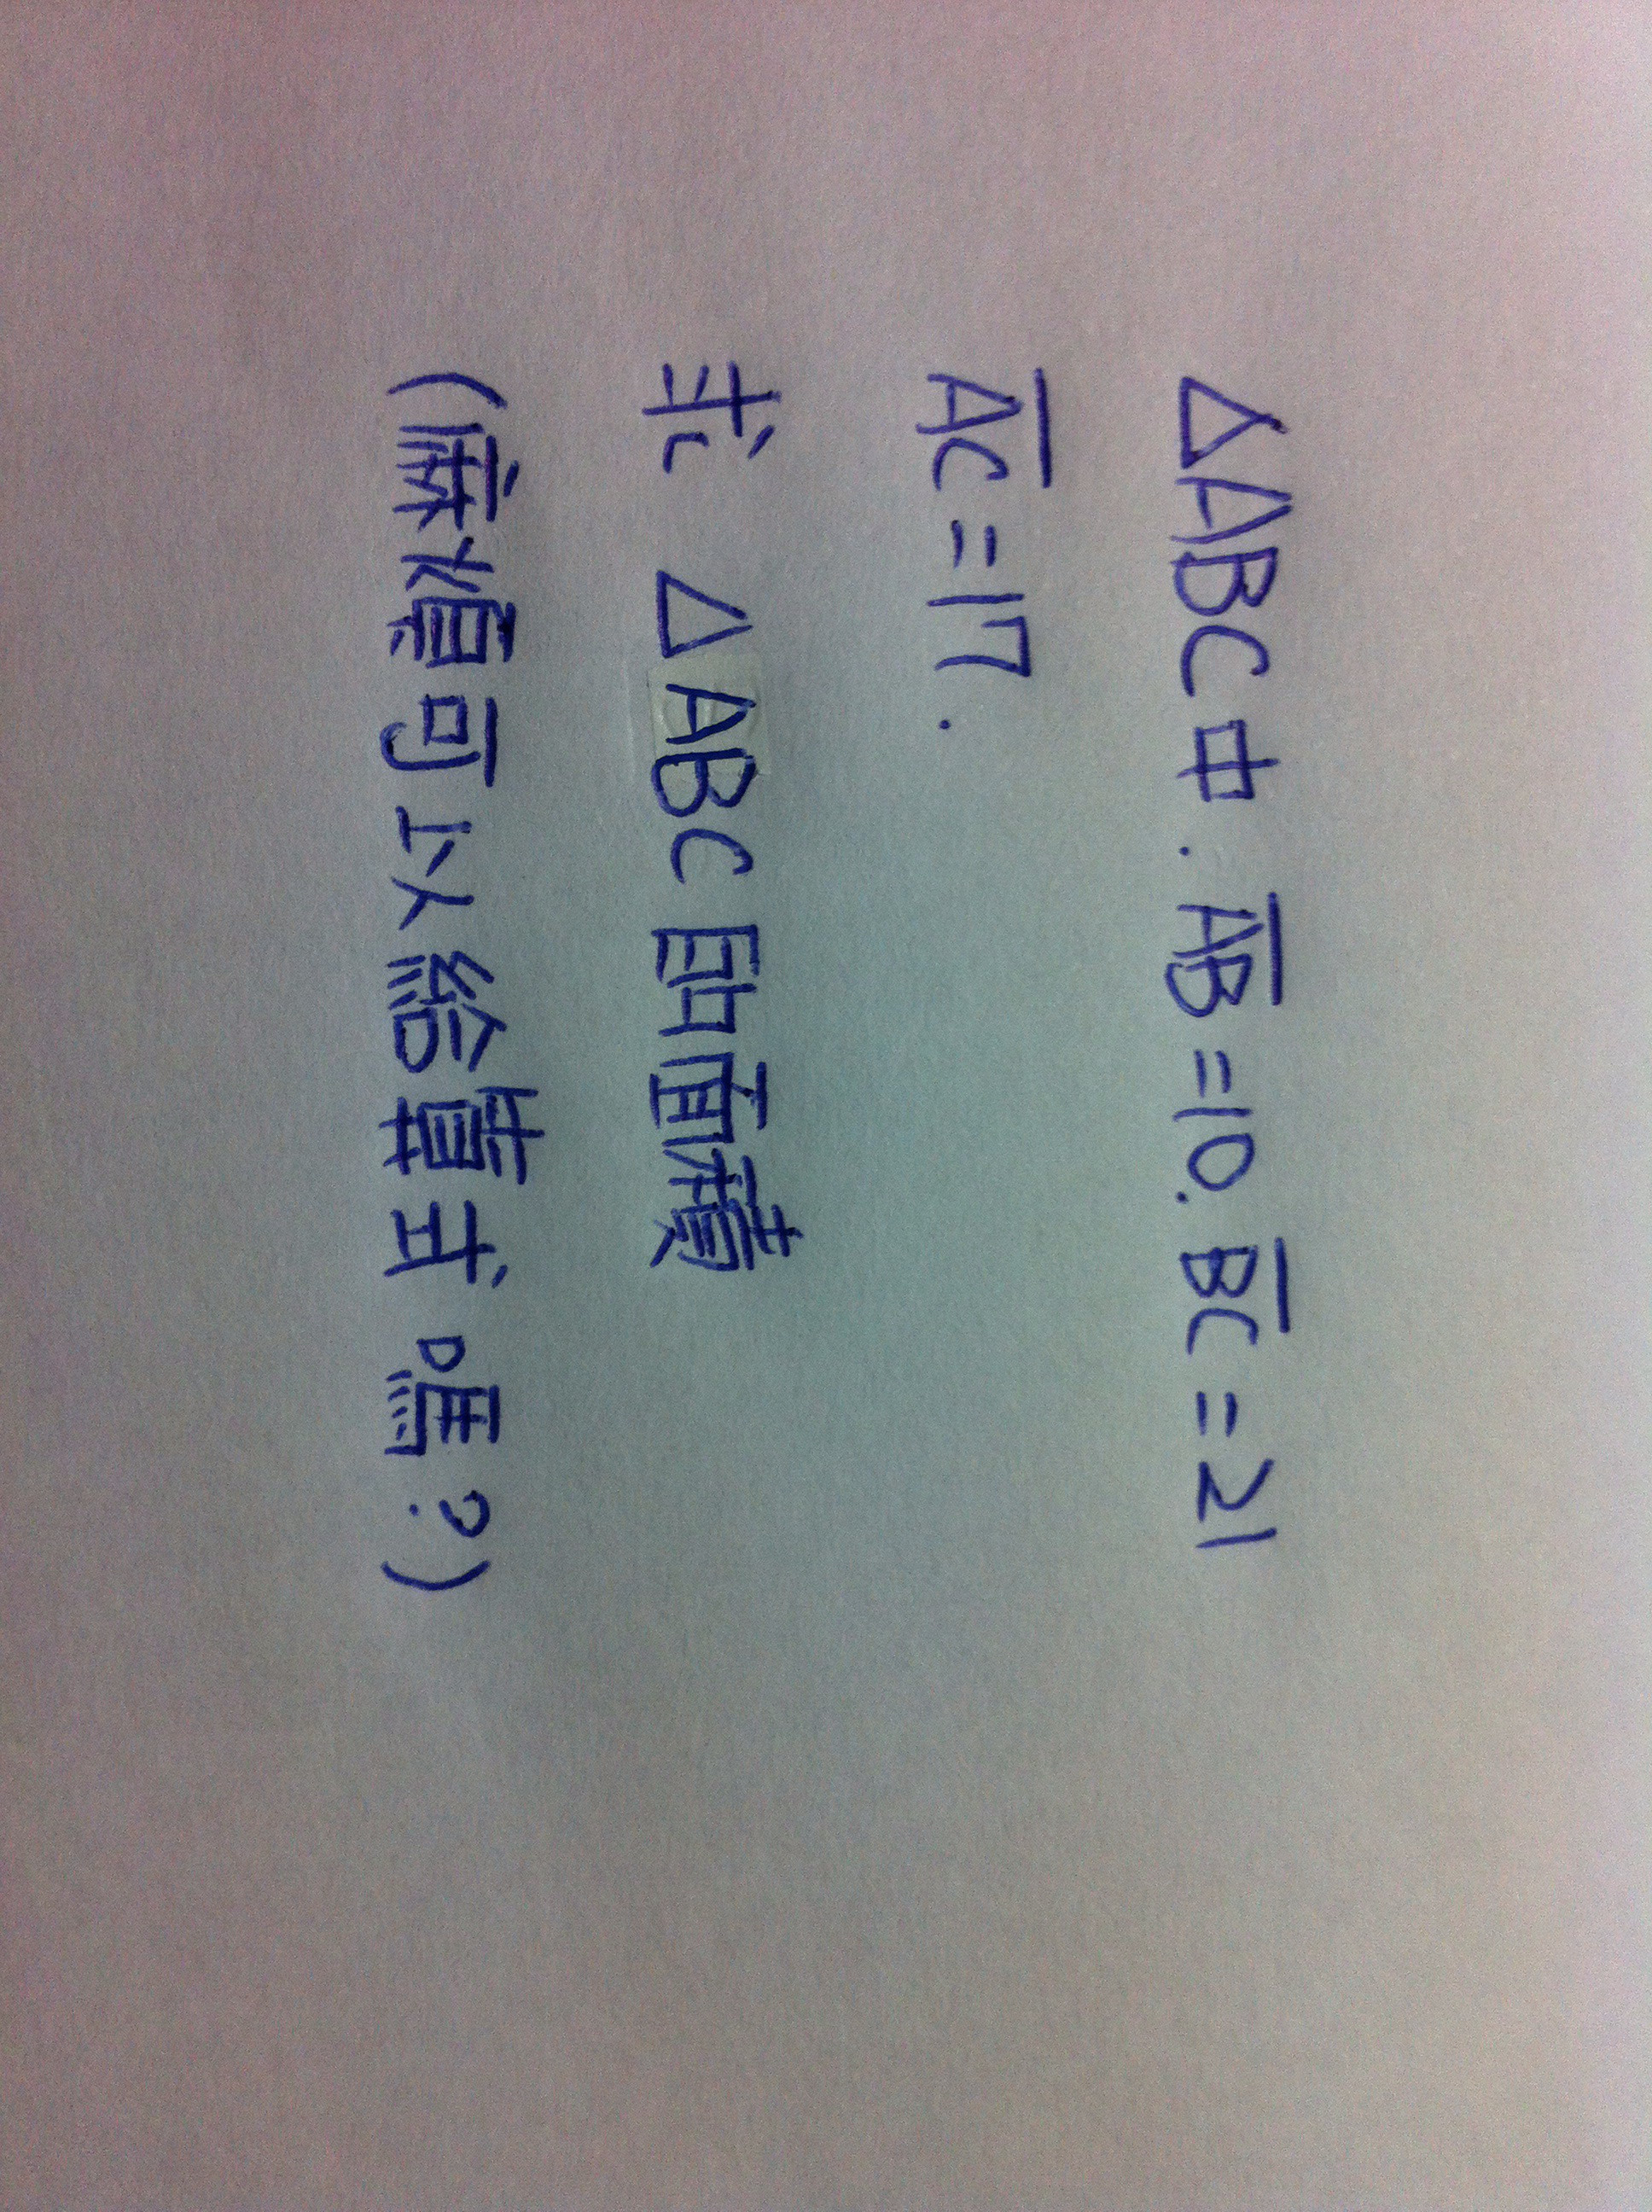 △ABC中.A̅B̅=10.B̅C̅=21
A̅C̅=17.
求 △ABC的面積
(麻煩可以給算式嗎?)